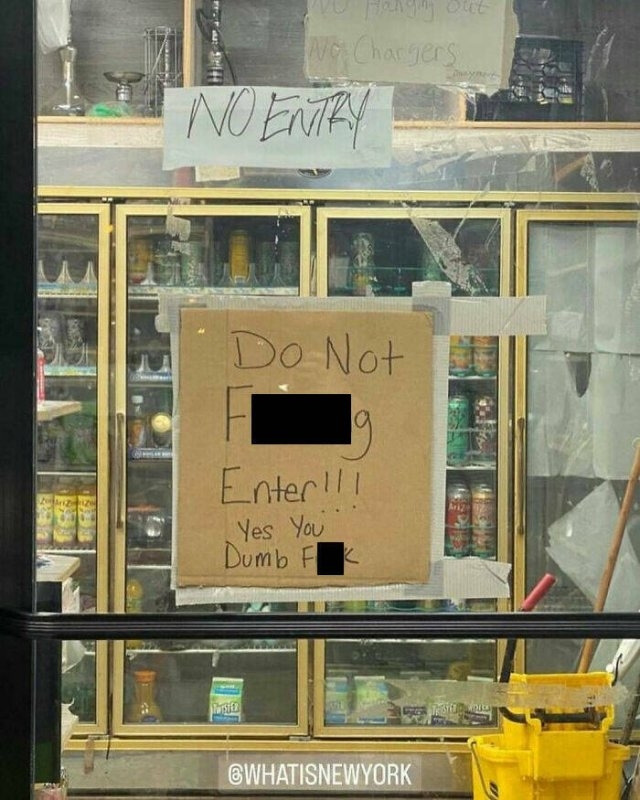 NO Hanging Out
NO Chargers
NO ENTRY
Do Not
F g
Enter!!!
Yes You
Dumb F k
AriZona
TWISTER
@WHATISNEWYORK